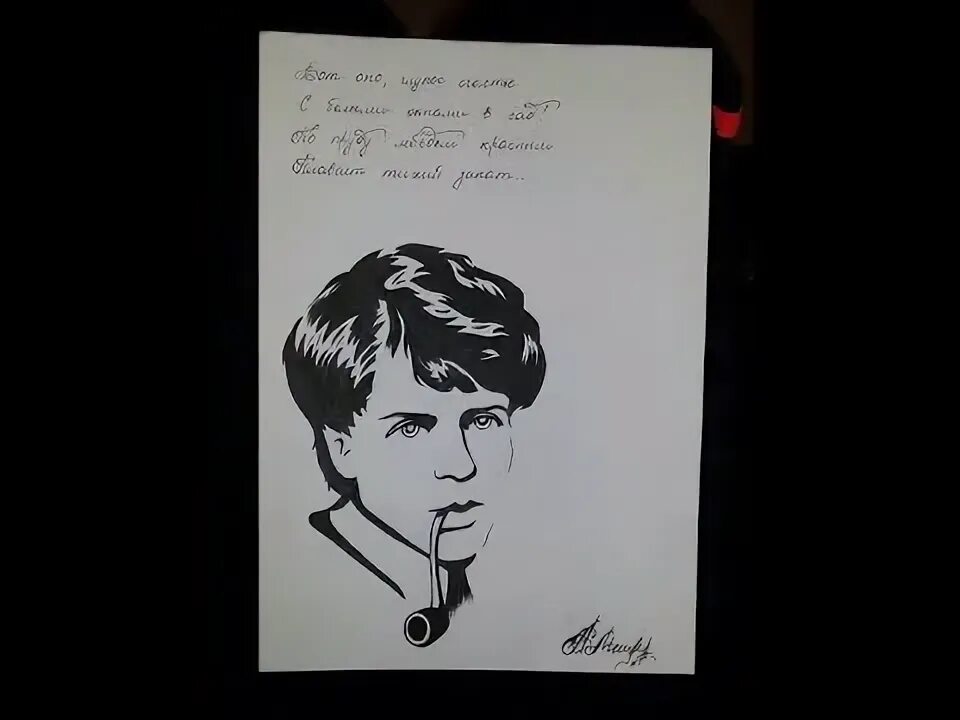 Вот оно, глупое счастье
С белыми окнами в сад!
По пруду лебедем красным
Плавает тихий закат..